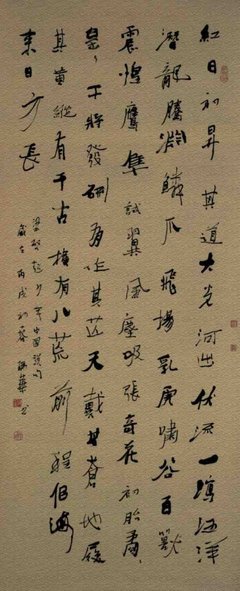 紅日初昇其道大光河出伏流一瀉汪洋
潛龍騰淵鱗爪飛揚乳虎嘯谷百獸
震惶鷹隼試翼風塵吸張奇花初胎矞々
皇々干將發硎有作其芒天戴其蒼地履
其黄縱有千古橫有八荒前程似海
来日方長
梁啓超少年中国説句
歲在丙戌初春